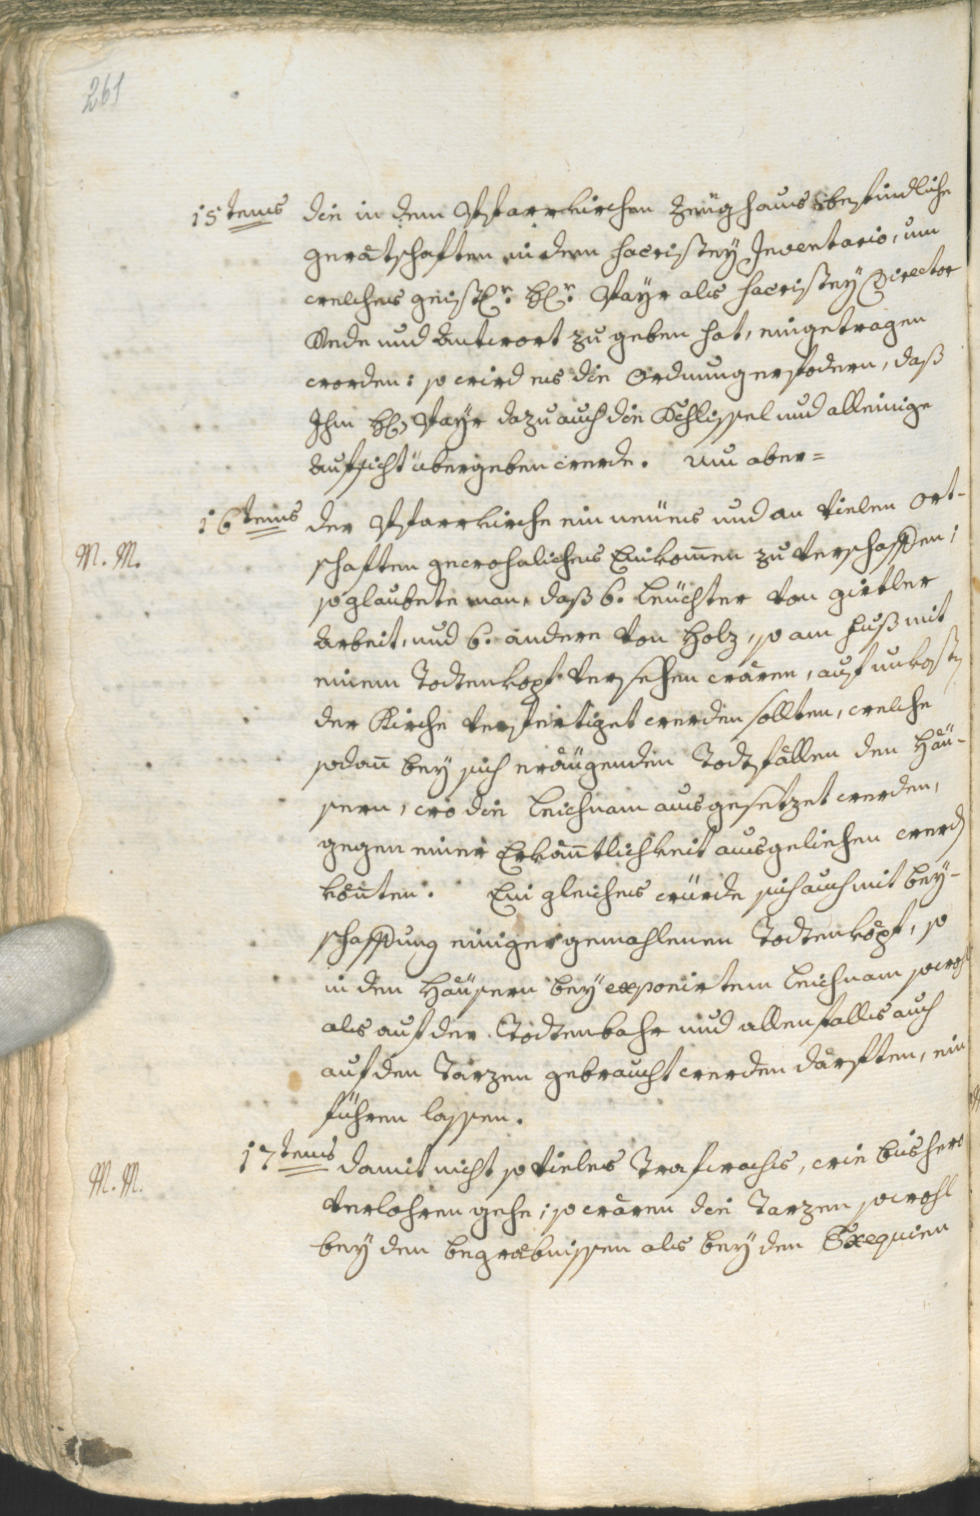 261
15tens die in dem Pfarrkirchen Zeüghaus befindliche
gerätschaften in dem Sacristey Inventario, um
welches geistl.r H.r Payr als Sacristey Director
Rede und Antwort zu geben hat, eingetragen
worden: so wird es die Ordnung erfodern, daß
Ihm H. Payr dazu auch die Schlissel und alleinige
Aufsicht übergeben werde. Um aber=
16tens der Pfarrkirche ein neües und an vielen Ort-
M. M.
schaften gewohnliches Einkom̄en zu verschaffen;
so glaubete man, daß 6. Leüchter von girtler
Arbeit, und 6. andere von Holz, so am Fuß mit
einem Todtenkopf versehen wären, auf unkosten
der Kirche verfertiget werden sollten, welche
sodan̄ bey sich eräugenden Todtfällen den Häü-
sern, wo die Leichnam ausgesetzet werden,
gegen einer Erkan̄tlichkeit ausgeliehen werden
kön̄ten. Ein gleiches würde sich auch mit bey-
schaffung einiger gemahlenen Todtenköpf, so
in den Häüsern bey exponirtem Leichnam sowohl
als auf der Todtenbahr und allenfalls auch
auf den Tarzen gebraucht werden därften, ein
führen lassen.
17tens damit nicht so vieles Trafwachs, wie bishero
M. M.
verlohren gehe; so wären die Tarzen sowohl
bey den begräbnissen als bey den Exequien